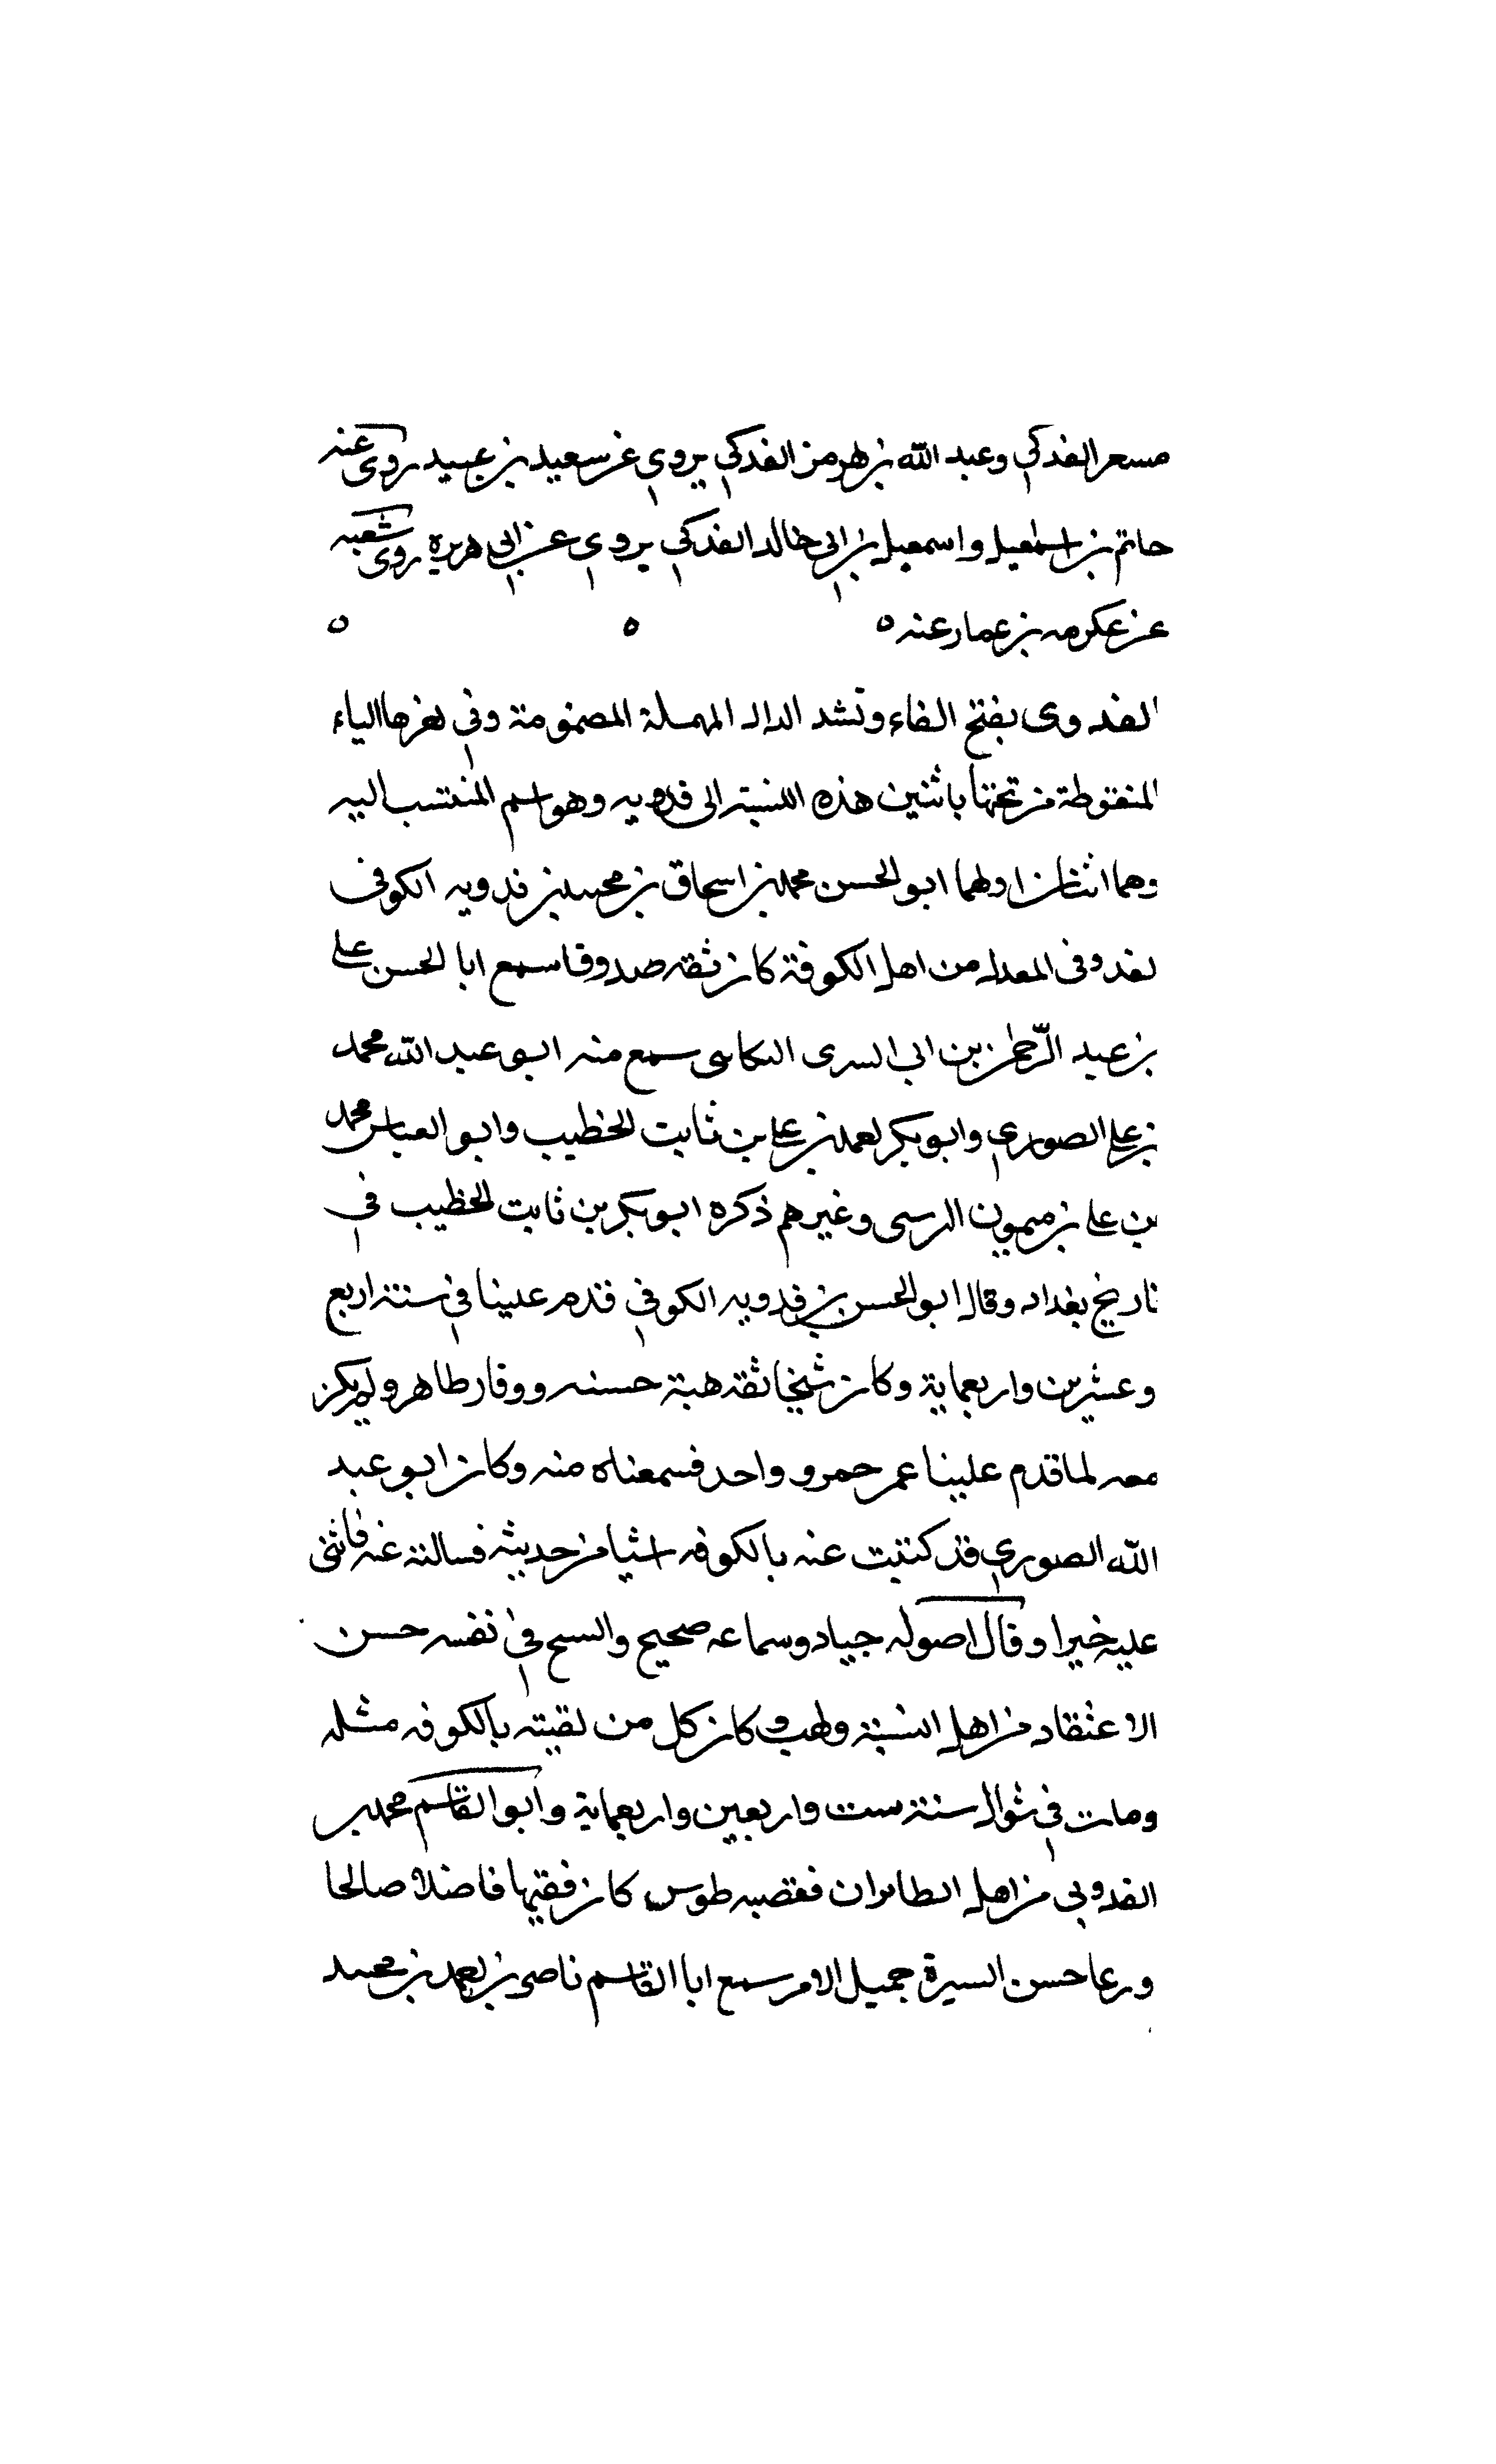 مسعر الفدكي وعبد الله بن هرمز الفدكي يروي عن سعيد بن عبيد روى عنه
حاتم بن اسمعيل واسمعيل بن ابي خالد الفدكي يروي عن ابي هريره روى شعبه
عن عكرمه بن عمار عنه ٥ ٥ ٥
الفدوى بفتح الفاء وتشد الدال المهملة المضمومة وفي اخرها الياء
المنقوطة من تحتها باثنين هذه النسبة الى فدويه وهو اسم المنتسب اليه
وهما اثنان اولهما ابو الحسن محمد بن اسحاق بن محمد بن فدويه الكوفي
المعدل من اهل الكوفة كان ثقه صدوقا سمع ابا الحسن علي
بن عبد الرحمن بن ابي السرى البكاى سمع منه ابو عبد الله محمد
بن علي الصوري وابو بكر احمد بن علي بن ثابت الخطيب وابو العباس محمد
بن علي بن ميمون النرسى وغيرهم ذكره ابو بكر بن ثابت الخطيب في
تاريخ بغداد وقال ابو الحسن بن فدويه الكوفي قدم علينا في سنة اربع
وعشرين واربعماية وكان شيخا ثقة هبة حسنه ووقار طاهر ولم يكن
معه لما قدم علينا واحد فسمعناه منه وكان ابو عبد
الله الصوري قد كتبت عنه بالكوفه اشيا من حديثه فسالته عنه فاثنى
عليه خيرا وقال اصوله جياد وسماعه صحيح والسح في نفسه حسن
الاعتقاد من اهل السنة كان كل من لقيته بالكوفه مثله
ومات في شوال سنة ست واربعين واربعماية وابو القاسم محمد بن
الفدوبى من اهل الطابران فقصبه طوس كان فقيها فاضلا صالحا
ورعا حسن السيرة جميل الامر سمع ابا القاسم ناصر بن احمد بن محمد